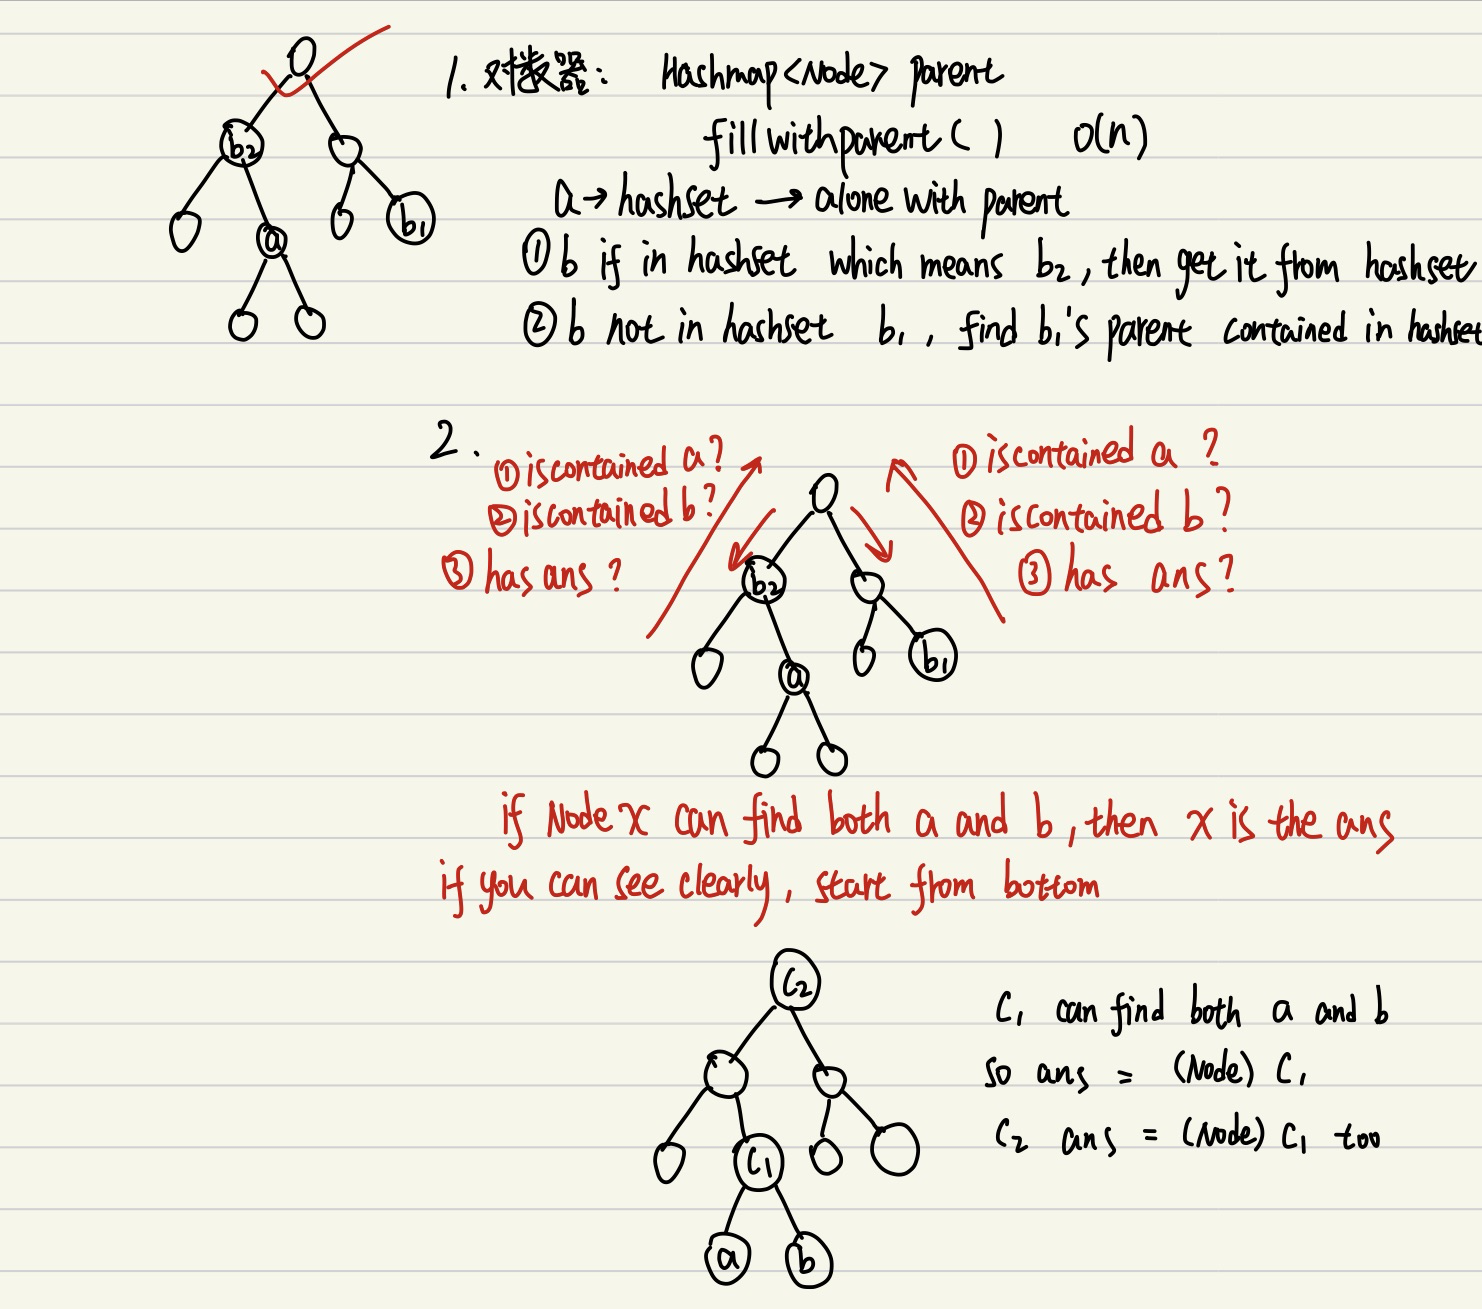 1. 对摋器: Hashmap<Node> parent
fill with parent ( ) O(n)
a → hashset → alone with parent
① b if in hashset which means b₂, then get it from hashset
② b not in hashset b₁, find b₁'s parent contained in hashset
b₂
a
b₁
2.
① is contained a?
② is contained b?
③ has ans?
① is contained a?
② is contained b?
③ has ans?
b₂
a
b₁
if Node x can find both a and b, then x is the ans
if you can see clearly, start from bottom
C₂
C₁
a b
C₁ can find both a and b
so ans = (Node) C₁
C₂ ans = (Node) C₁ too